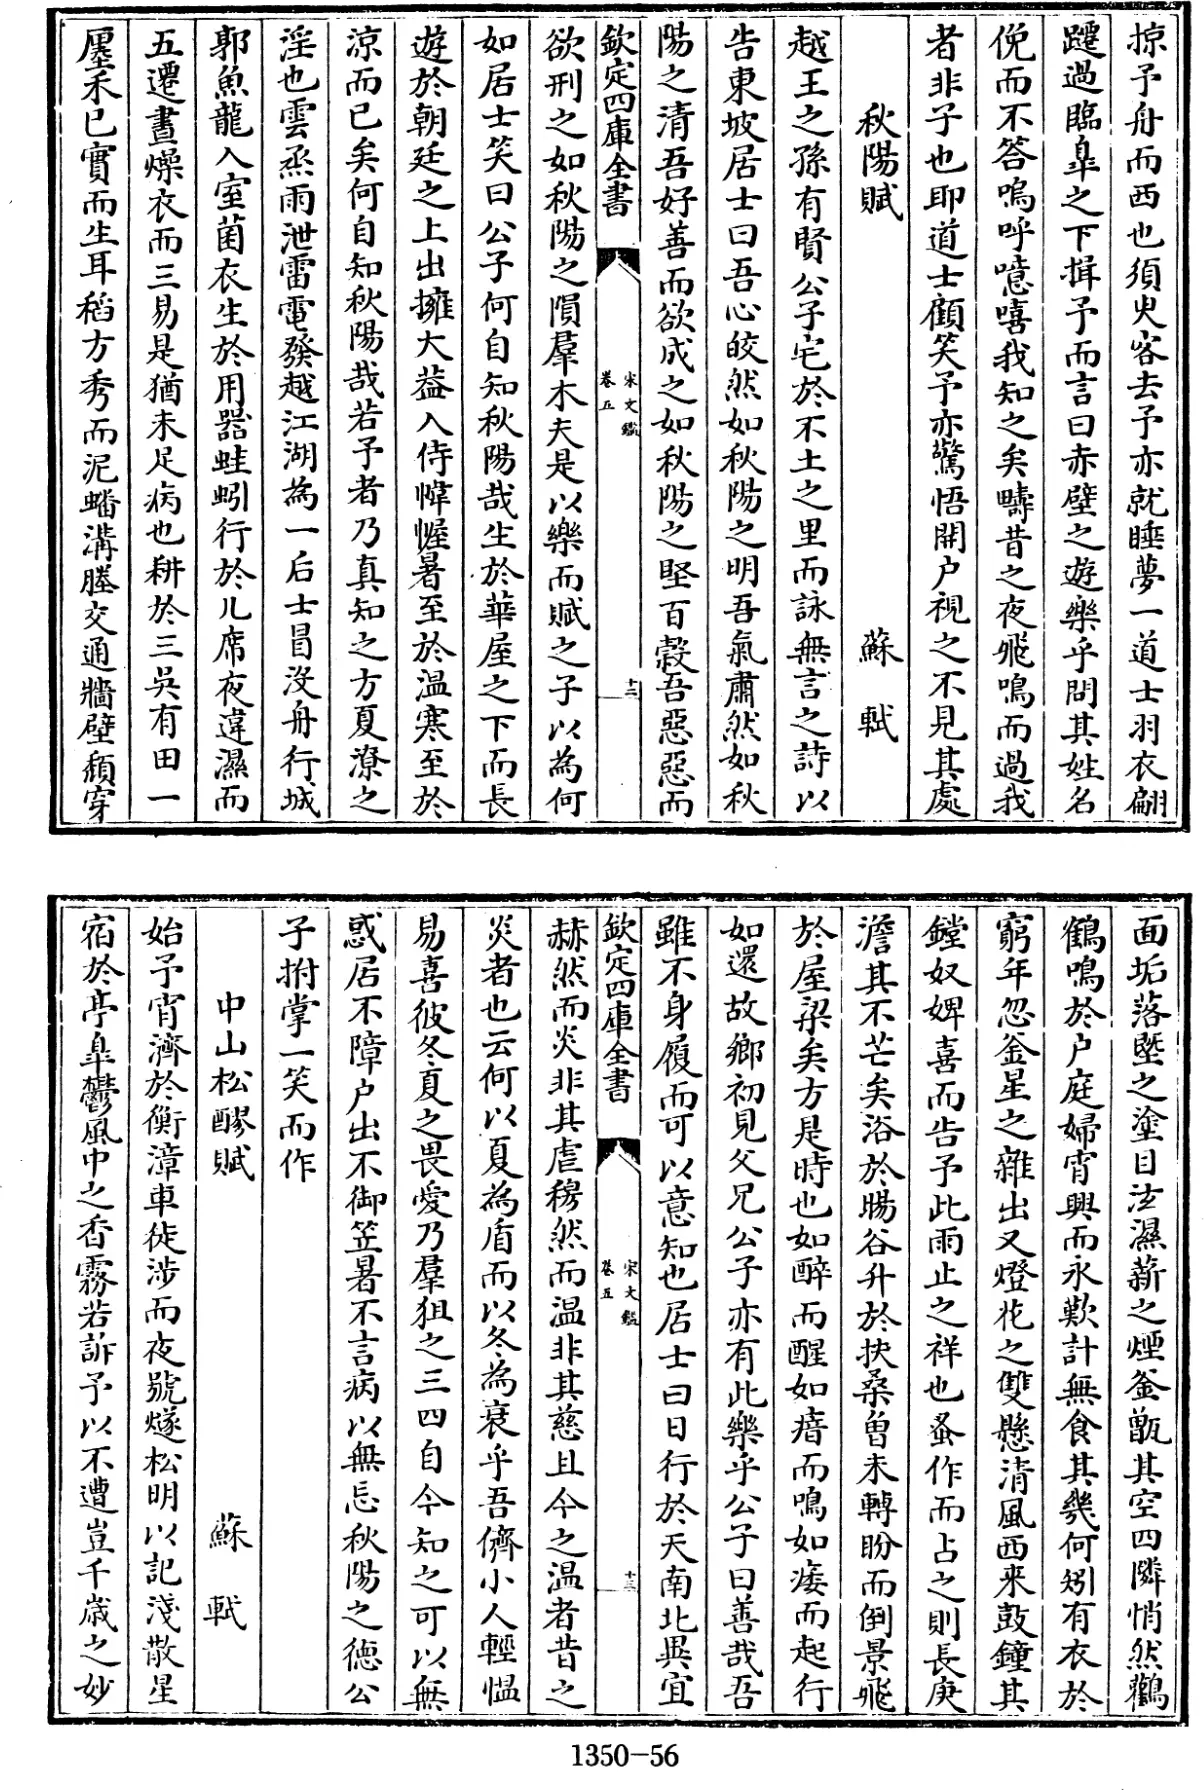 掠予舟而西也須臾客去予亦就睡夢一道士羽衣翩
躚過臨臯之下揖予而言曰赤壁之遊樂乎問其姓名
俛而不答嗚呼噫嘻我知之矣疇昔之夜飛鳴而過我
者非子也耶道士顧笑予亦驚悟開户視之不見其處
秋陽賦 蘇軾
越王之孫有賢公子宅於不土之里而詠無言之詩以
告東坡居士曰吾心皎然如秋陽之明吾氣肅然如秋
陽之清吾好善而欲成之如秋陽之堅百穀吾惡惡而
欽定四庫全書 宋文鑑 卷五 十二
欲刑之如秋陽之隕羣木夫是以樂而賦之子以為何
如居士笑曰公子何自知秋陽哉生於華屋之下而長
遊於朝廷之上出擁大葢入侍幃幄暑至於温寒至於
涼而已矣何自知秋陽哉若予者乃真知之方夏潦之
淫也雲烝雨泄雷電發越江湖為一后土冒没舟行城
郭魚龍入室菌衣生於用器蛙蚓行於几席夜違濕而
五遷晝燥衣而三易是猶未足病也耕於三吳有田一
廛禾已實而生耳稻方秀而泥蟠溝塍交通牆壁頽穿
面垢落塈之塗目泫濕薪之煙釜甑其空四隣悄然鸛
鶴鳴於户庭婦宵興而永歎計無食其幾何矧有衣於
窮年忽釜星之雜出又燈花之雙懸清風西來鼓鐘其
鏜奴婢喜而告予此雨止之祥也蚤作而占之則長庚
澹其不芒矣浴於暘谷升於扶桑曽未轉盼而倒景飛
於屋梁矣方是時也如醉而醒如瘖而鳴如痿而起行
如還故鄉初見父兄公子亦有此樂乎公子曰善哉吾
雖不身履而可以意知也居士曰日行於天南北異宜
欽定四庫全書 宋文鑑 卷五 十三
赫然而炎非其虐穆然而温非其慈且今之温者昔之
炎者也云何以夏為盾而以冬為衰乎吾儕小人輕愠
易喜彼冬夏之畏愛乃羣狙之三四自今知之可以無
惑居不障户出不御笠暑不言病以無忘秋陽之德公
子拊掌一笑而作
中山松醪賦 蘇軾
始予宵濟於衡漳車徒涉而夜號燧松明以記淺散星
宿於亭臯鬱風中之香霧若訴予以不遭豈千歲之妙
1350-56